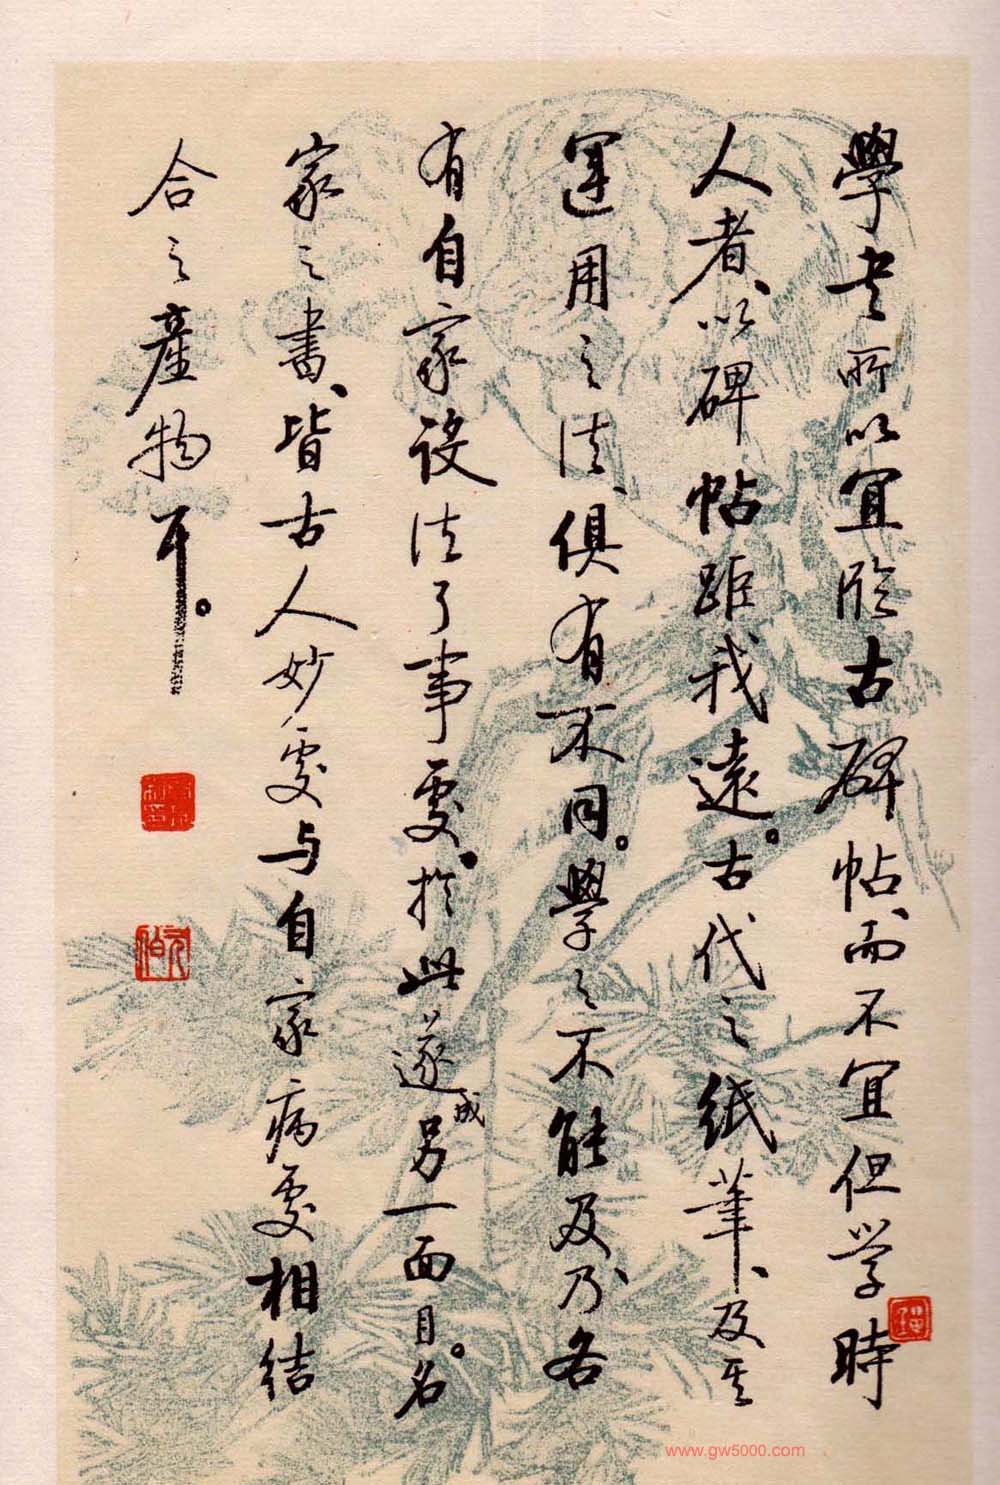 學书所以宜临古碑帖、而不宜但学時
人者、以碑帖距我遠。古代之紙筆、及其
運用之法、俱有不同。學之不能及、乃各
有自家设法了事處、於此遂成另一面目。名
家之書、皆古人妙處与自家病處相結
合之產物耳。
www.gw5000.com